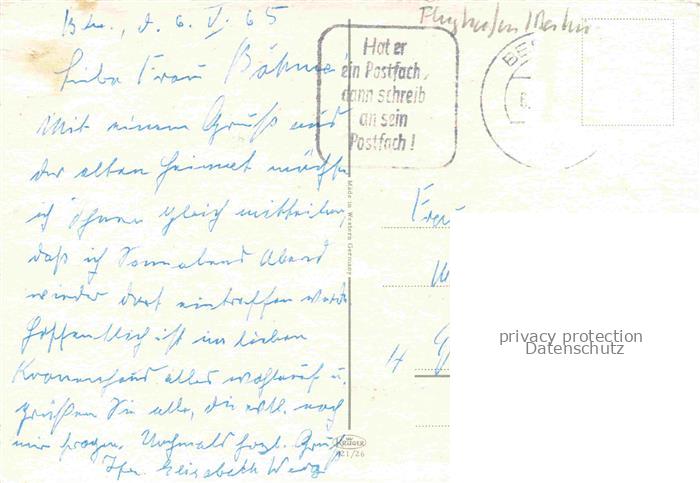 Bln., d. 6. V. 65
Flughafen Berlin
Liebe Frau Böhme!
Mit einem Gruß aus
der alten Heimat möchte
ich Ihnen gleich mitteilen,
daß ich Sonnabend Abend
wieder dort eintreffen werde.
Hoffentlich ist im lieben
Kronenhaus alles wohlauf u.
grüßen Sie alle, die evtl. nach
mir fragen. Nochmals herzl. Gruß
Ihre Elisabeth
Hat er
ein Postfach,
dann schreib
an sein
Postfach!
BE
6.
Made in Western Germany
Frau
4
KRÜGER
921/26
privacy protection
Datenschutz